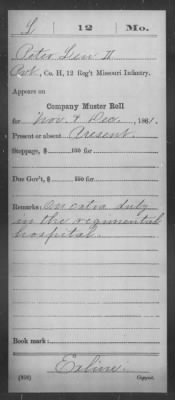 L | 12 | Mo.
Peter Linn II
Pvt, Co. H, 12 Reg't Missouri Infantry.
Appears on
Company Muster Roll
for Nov. & Dec., 1861.
Present or absent Present.
Stoppage, $ 100 for
Due Gov't, $ 100 for
Remarks: On extra duty
in the regimental
hospital.
Book mark:
Exline
(858) Copyist.